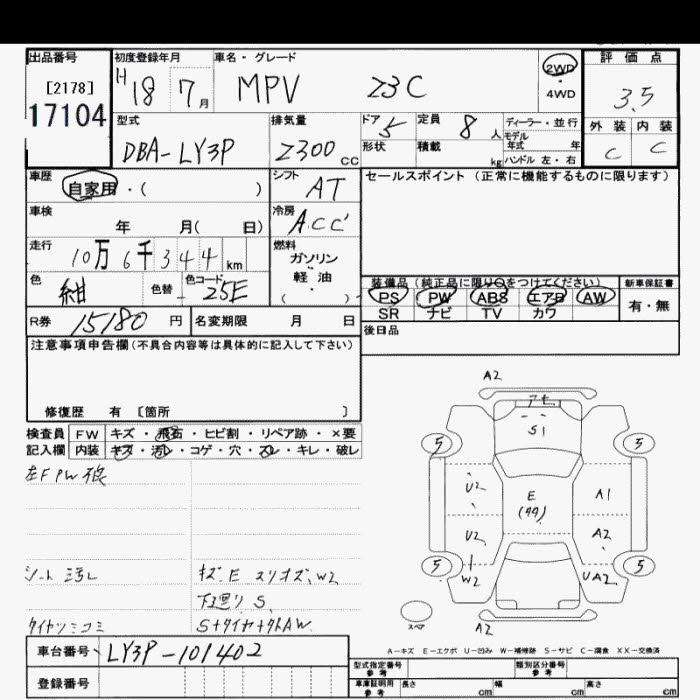 出品番号 初度登録年月 車名・グレード 評価点
[2178] H18 7月 MPV 23C 2WD・4WD 3.5
17104
型式 排気量 ドア 5 定員 8人 ディーラー・並行 外装 内装
DBA-LY3P 2300cc 形状 積載 kg モデル年式 年 ハンドル 左・右 C C
車歴 シフト セールスポイント (正常に機能するものに限ります)
自家用・( ) AT
車検 冷房
年 月( 日) ACC'
走行 燃料
10万6千344km ガソリン・軽油 ( )
色 紺 色替 - 色コード 25E
装備品 (純正品に限り○をつけてください) 新車保証書
PS PW ABS エアB AW 有・無
SR ナビ TV カワ
R券 15180円 名変期限 月 日 後日品
注意事項申告欄 (不具合内容等は具体的に記入して下さい)
修復歴 有 〔箇所 〕
検査員 FW キズ・飛石・ヒビ割・リペア跡・×要
記入欄 内装 キズ・汚レ・コゲ・穴・スレ・キレ・破レ
左F PW
シート 汚レ
キズ. E スリキズ. W2
下廻り S.
S+タイヤ+外AW.
A2
S1
5 5
U2 E A1
(44)
U2 A2
5 5
W2 UA2
スペア A2
A-キズ E-エクボ U-凹み W-補修跡 S-サビ C-腐食 XX-交換済
車台番号 LY3P-101402
登録番号
型式指定番号 参考 類別区分番号 参考
車庫証明用 参考 長さ cm 幅 cm 高さ cm